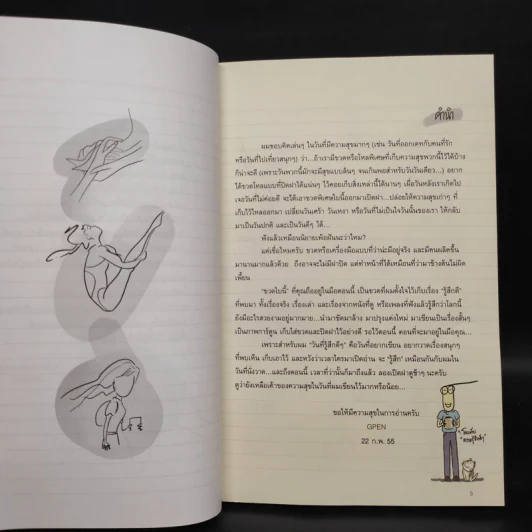 คำนำ
ผมชอบคิดเล่นๆ ในวันที่มีความสุขมากๆ (เช่น วันที่ออกเดทกับคนที่รัก
หรือวันที่ไปเที่ยวสนุกๆ) ว่า...ถ้าเรามีขวดหรือโหลพิเศษที่เก็บความสุขพวกนี้ไว้ได้บ้าง
ก็น่าจะดี (เพราะวันพวกนี้มักจะมีสุขแบบล้นๆ จนเกินพอสำหรับวันวันเดียว...) อยาก
ได้ขวดโหลแบบที่ปิดฝาได้แน่นๆ ไว้คอยเก็บสิ่งเหล่านี้ได้นานๆ เมื่อวันหลังเราเกิดไป
เจอวันที่ไม่ค่อยดี จะได้เอาขวดพิเศษใบนี้ออกมาเปิดฝา...ปล่อยให้ความสุขเก่าๆ ที่
เก็บไว้ไหลออกมา เปลี่ยนวันเศร้า วันเหงา หรือวันที่ไม่เป็นใจวันนั้นของเรา ให้กลับ
มาเป็นวันปกติ และเป็นวันดีๆ ได้...
ฟังแล้วเหมือนนิยายเพ้อฝันนะว่าไหม?
แต่เชื่อไหมครับ ขวดหรือเครื่องมือแบบที่ว่าน่ะมีอยู่จริง และมีคนผลิตขึ้น
มานานมากแล้วด้วย ถึงอาจจะไม่มีฝาปิด แต่ทำหน้าที่ได้เหมือนที่ว่ามาข้างต้นไม่ผิด
เพี้ยน
"ขวดใบนี้" ที่คุณถืออยู่ในมือตอนนี้ เป็นขวดที่ผมตั้งใจไว้เก็บเรื่อง "รู้สึกดี"
ที่พบมา ทั้งเรื่องจริง เรื่องเล่า และเรื่องจากหนังที่ดู หรือเพลงที่ฟังแล้วรู้สึกว่าโลกนี้
ยังมีอะไรสวยงามอยู่มากมาย...นำมาขัดมาล้าง มาปรุงแต่งใหม่ มาเขียนเป็นเรื่องสั้นๆ
เป็นภาพการ์ตูน เก็บใส่ขวดและปิดฝาไว้อย่างดี รอไว้ตอนนี้ ตอนที่จะมาอยู่ในมือคุณ...
เพราะสำหรับผม "วันที่รู้สึกดีๆ" คือวันที่อยากเขียน อยากวาดเรื่องสนุกๆ
ที่พบเห็น เก็บเอาไว้ และหวังว่าเวลาใครมาเปิดอ่าน จะ "รู้สึก" เหมือนกันกับผมใน
วันที่นั่งวาด...และถึงตอนนี้ เวลาที่ว่านั้นก็มาถึงแล้ว ลองเปิดฝาดูช้าๆ นะครับ
ดูว่ายังเหลือเค้าของความสุขในวันที่ผมเขียนไว้มากหรือน้อย...
ขอให้มีความสุขในการอ่านครับ
GPEN
22 ก.พ. 55
5